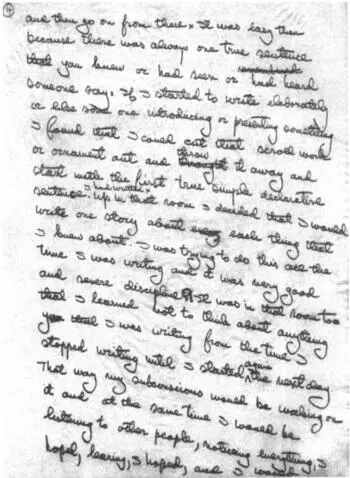 4
and then go on from there x It was easy then
because there was always one true sentence
that you knew or had seen or had heard
someone say x If I started to write elaborately
or else some one introducing or presenting something
I found that I could cut that scroll work
or ornament out and throw it away and
start with the first true simple declarative
sentence I had written x Up in that room I decided that I would
write one story about each thing that
I knew about. I was trying to do this all the
time I was writing and it was very good
and severe discipline. ¶ It was in that room too
that I learned not to think about anything
that I was writing from the time I
stopped writing until I started again the next day
That way my subconscious would be working on
it and at the same time I would be
listening to other people, noticing everything, I
hoped, learing, I hoped, and I would